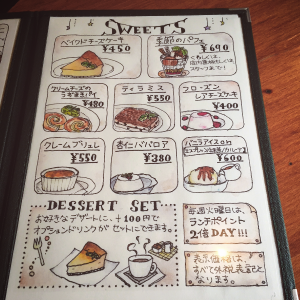 SWEETS
ベイクドチーズケーキ
¥450
季節のパフェ
¥690
くわしくは、
スタッフまで!
クリームチーズの
¥480
ティラミス
¥550
フローズン
レアチーズケーキ
¥400
クレームブリュレ
¥550
杏仁ババロア
¥380
バニラアイスon
¥600
DESSERT SET
お好きなデザートに、+100円で
オプションドリンクがセットにできます。
毎週火曜日は、
ランチポイント
2倍DAY!!!
表示価格は、
すべて体税表示と
なります。